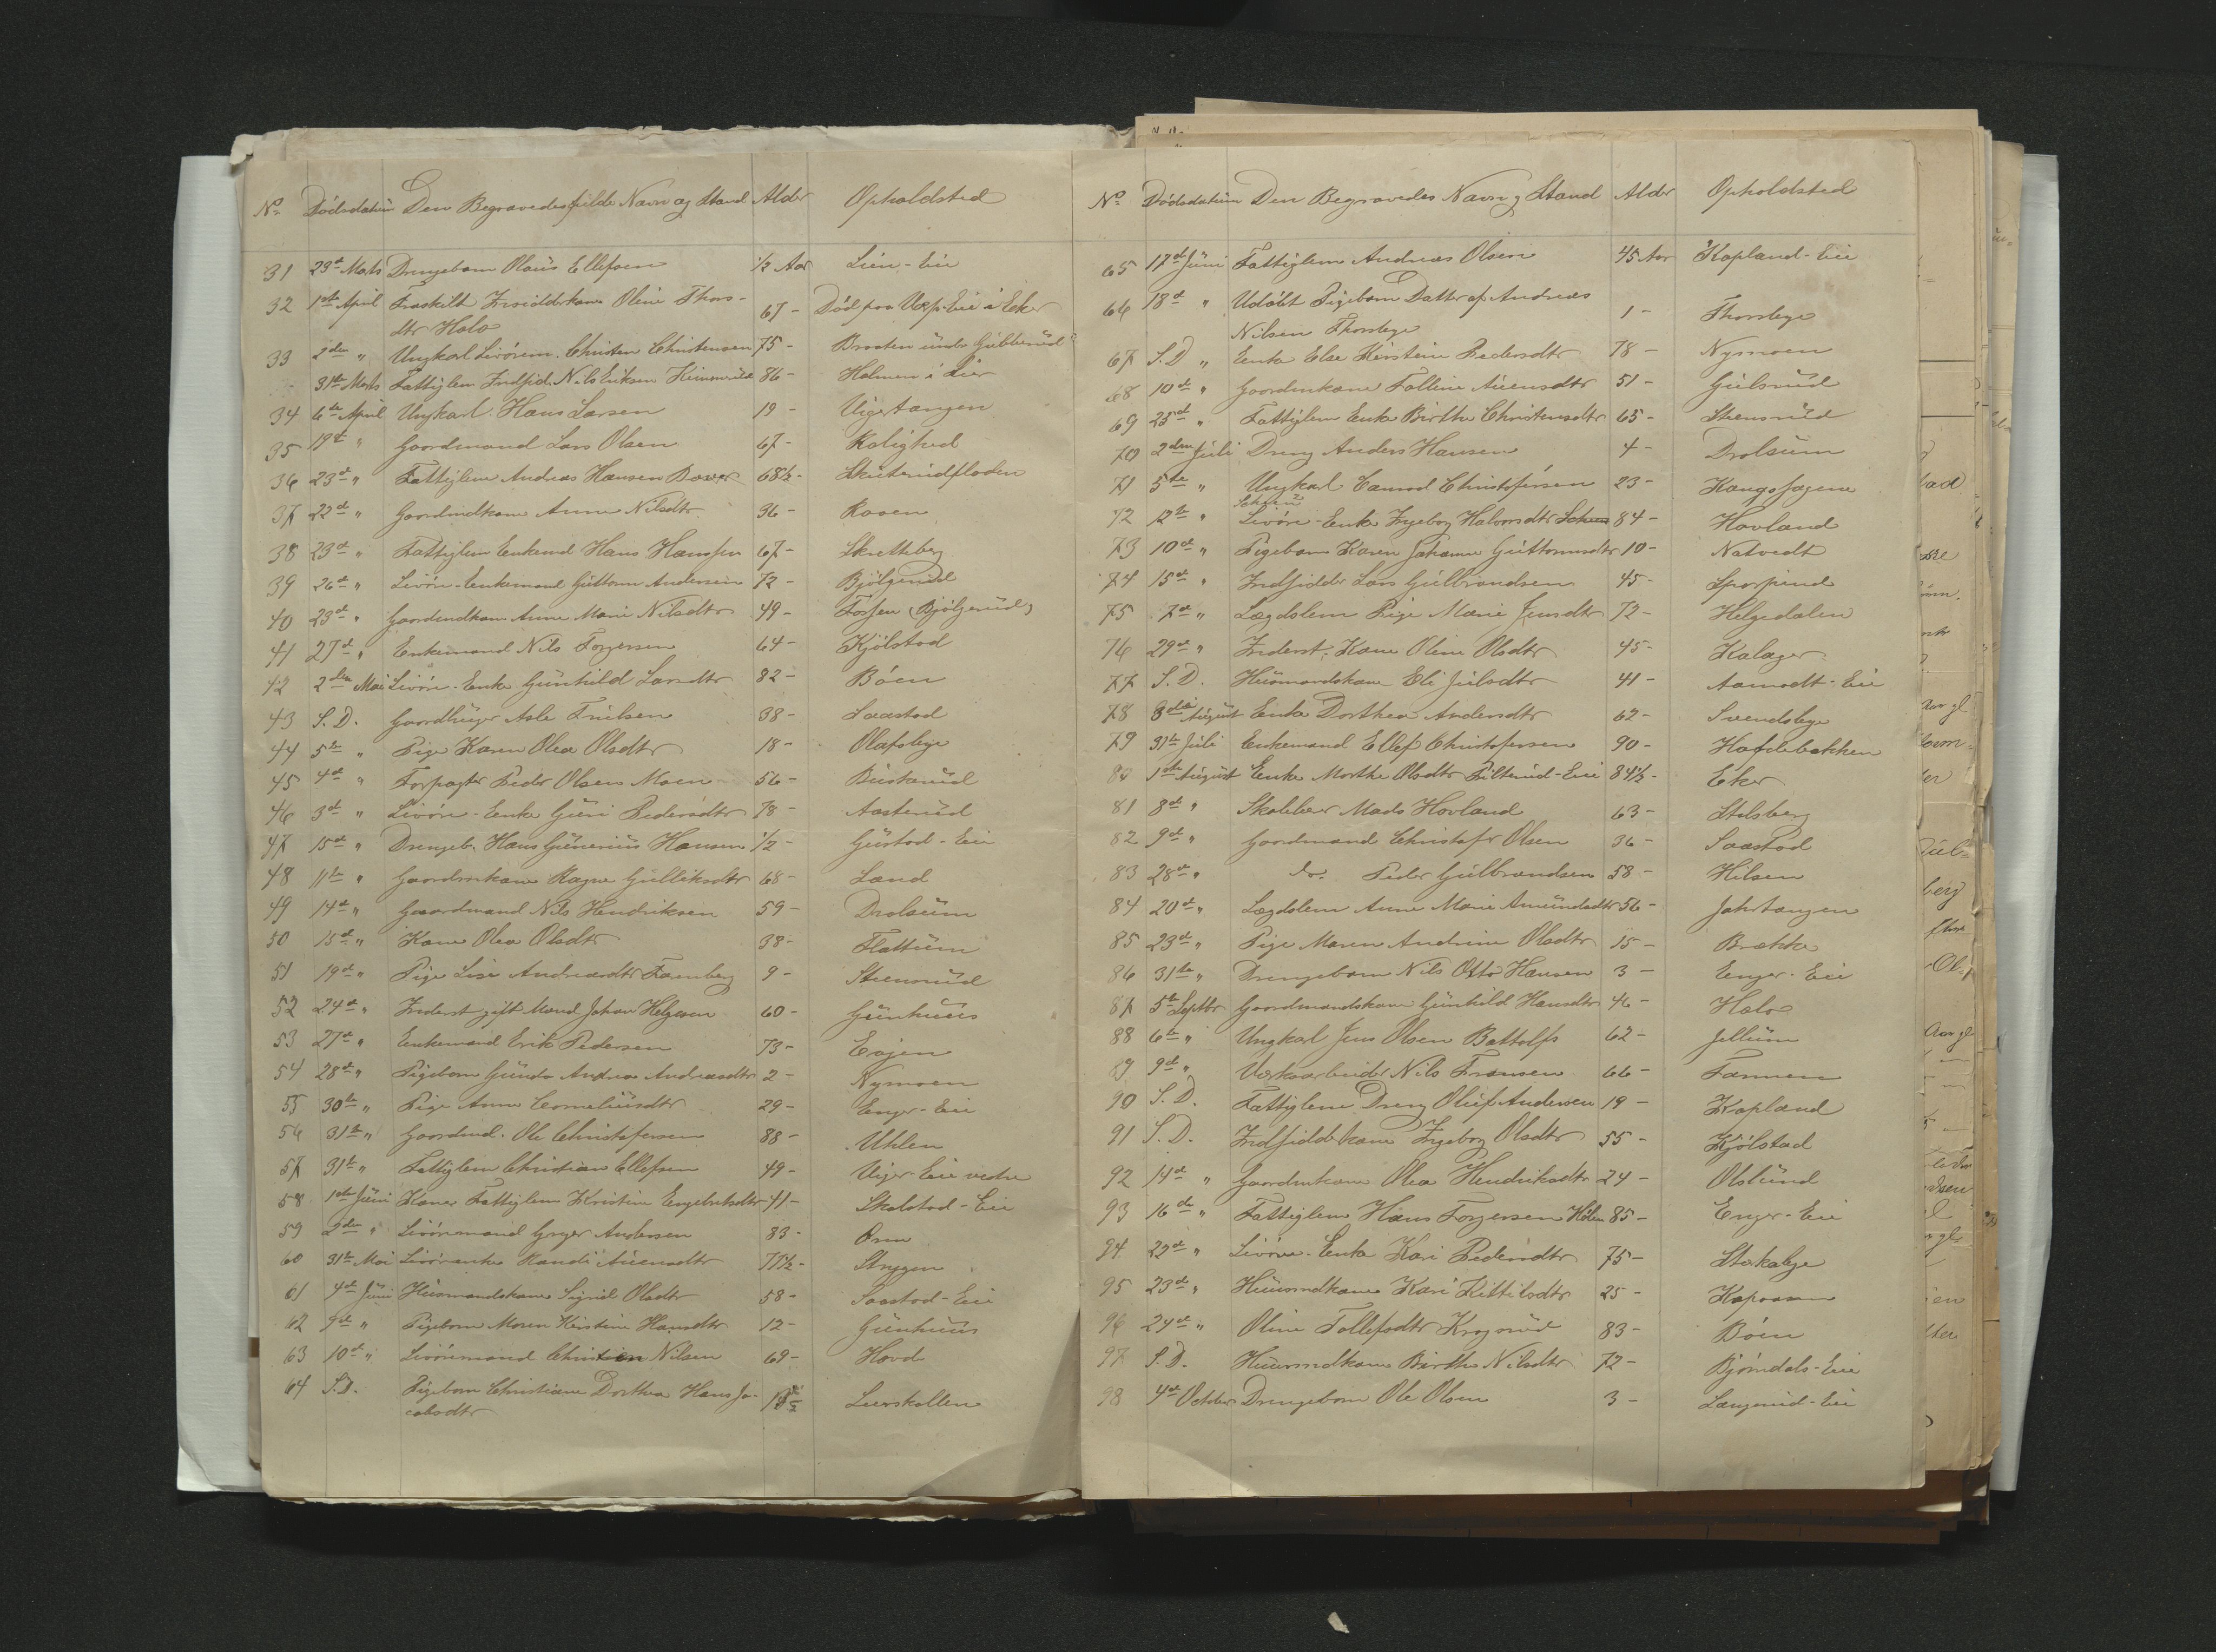 No Dödsdatum Den Begravedes fulde Navn og Stand Alder Opholdsted
31 29de Marts Drengebarn Olaus Ellefsen 1/2 Aar Lien-Eie
32 1ste April Fraskilt Kone Oline Thors- 67 - Död paa Eie i Eker
dtr Holo
33 2den " Ungkarl Livören. Christen Christensen 75 - Braaten under Gubberud
31te Marts Fattiglem Indsid. Nils Eriksen 86 - Holmen i Lier
34 6te April Ungkarl Hans Larsen 19 - Vigertangen
35 19de " Gaardmand Lars Olsen 67 - Rolighed
36 23de " Fattiglem Andreas Hansen 68 1/2 - Skuterudfloden
37 22de " Gaardmdkone Anne Nilsdtr 36 - Roaen
38 23de " Fattiglem Enkemd Hans Hanssen 67 - Skretteberg
39 26de " Livöre-Enkemand Guttorm Andersen 72 - Bjölgerud
40 23de " Gaardmdkone Anne Marie Nilsdtr 49 - Fossen (Bjölgerud)
41 27de " Enkemand Nils Torgersen 64 - Kjölstad
42 2den Mai Livöre-Enke Gunhild Larsdtr 82 - Böen
43 S.D. Gaardbruger Asle Truelsen 38 - Saastad
44 5te " Pige Karen Olea Olsdtr 18 - Olafsbye
45 4de " Forpagter Peder Olsen Moen 56 - Buskerud
46 3de " Livöre-Enke Guri Pedersdtr 78 - Aasterud
47 15de " Drengeb. Hans Gunerius Hansen 1/2 - Gustad-Eie
48 11te " Gaardmkone Ragne Gulliksdtr 68 - Land
49 14de " Gaardmand Nils Hendriksen 59 - Drolsum
50 15de " Kone Olea Olsdtr 38 - Flattum
51 19de " Pige Lise Andreasdtr Farnberg 9 - Steensrud
52 24de " Inderst gift Mand Johan Helgesen 60 - Gunhuus
53 27de " Enkemand Erik Pedersen 73 -
54 28de " Pigebarn Gunda Andrea Andreasdtr 2 - Nymoen
55 30te " Pige Anne Corneliusdtr 29 - Enger-Eie
56 31te " Gaardmd. Ole Christofersen 88 - Uhlen
57 31te " Fattiglem Christian Ellefsen 49 - Viger-Eie vestre
58 1ste Juni Kone Fattiglem Kristine Engebretsdtr 41 - Skalstad-Eie
59 2den " Livöremand Greger Andersen 83 -
60 31te Mai Livörenke Randi Auensdtr 77 1/2 - Strygen
61 4de Juni Huusmandskone Sigrid Olsdtr 58 - Saastad-Eie
62 9de " Pigebarn Maren Kirstine Hansdtr 12 - Gunhuus
63 10de " Livöremand Christian Nilsen 69 - Hovd
64 S.D. Pigebarn Christiane Dorthea Hans Ja- Leerskallen
cobsdtr
No Dödsdatum Den Begravedes Navn og Stand Alder Opholdsted
65 17de Juni Fattiglem Andreas Olsen 45 Aar Kopland-Eie
66 18de " Udöbt Pigebarn Datter af Andreas 1 - Thorsbye
Nilsen Thorsbye
67 S.D " Enke Else Kirstine Pedersdtr 78 - Nymoen
68 10de " Gaardmkone Tolline Auensdtr 51 - Gulsrud
69 25de " Fattiglem Enke Birthe Christensdtr 65 - Steensrud
70 2den Juli Dreng Anders Hansen 4 - Drolsum
71 5te " Ungkarl Conrad Christofersen 23 - Kongssagene
72 12te " Livöre-Enke Ingeborg Halvorsdtr 84 - Hovland
73 10de " Pigebarn Karen Johanne Guttormsdtr 10 - Natvedt
74 15de " Indsidder Lars Gulbrandsen 45 - Sporpind
75 7de " Lægdslem Pige Marie Jensdtr 72 - Helgedalen
76 29de " Inderst. Kone Oline Olsdtr 45 - Kalager
77 S.D. Huusmandskone Eli Julsdtr 41 - Aamodt-Eie
78 3die August Enke Dorthea Andersdtr 62 - Svendsbye
79 31te Juli Enkemand Ellef Christofersen 90 - Hofdebakken
80 1ste August Enke Marthe Olsdtr Pilterud-Eie 84 1/2 - Eker
81 8de " Skolelærer Mads Hovland 63 - Stilsberg
82 9de " Gaardmand Christofr Olsen 36 - Saastad
83 28de " do. Peder Gulbrandsen 58 - Hilsen
84 20de " Lægdslem Anne Marie Amundsdtr 56 - Jahrtangen
85 23de " Pige Maren Andrine Olsdtr 15 - Brække
86 31te " Drengebarn Nils Otto Hansen 3 - Enger-Eie
87 5te Septbr Gaardmandskone Gunhild Hansdtr 46 - Holo
88 6te " Ungkarl Jens Olsen Battolfs 62 - Jellum
89 9de " Værksarbeider Nils Fransen 66 -
90 S.D. Fattiglem Dreng Oluf Andersen 19 - Kopland
91 S.D. Indsidderkone Ingeborg Olsdtr 55 - Kjölstad
92 14de " Gaardmkone Olea Hendriksdtr 24 - Olslund
93 16de " Fattiglem Hans Torgersen 85 - Enger-Eie
94 22de " Livöre-Enke Kari Pedersdtr 75 - Stokkebye
95 23de " Huusmdkone Kari Kittilsdtr 25 -
96 24de " Oline Tollefsdtr Krogsrud 83 - Böen
97 S.D. Huusmdkone Birthe Nilsdtr 72 - Bjørndals-Eie
98 4de October Drengebarn Ole Olsen 3 - Langerud-Eie